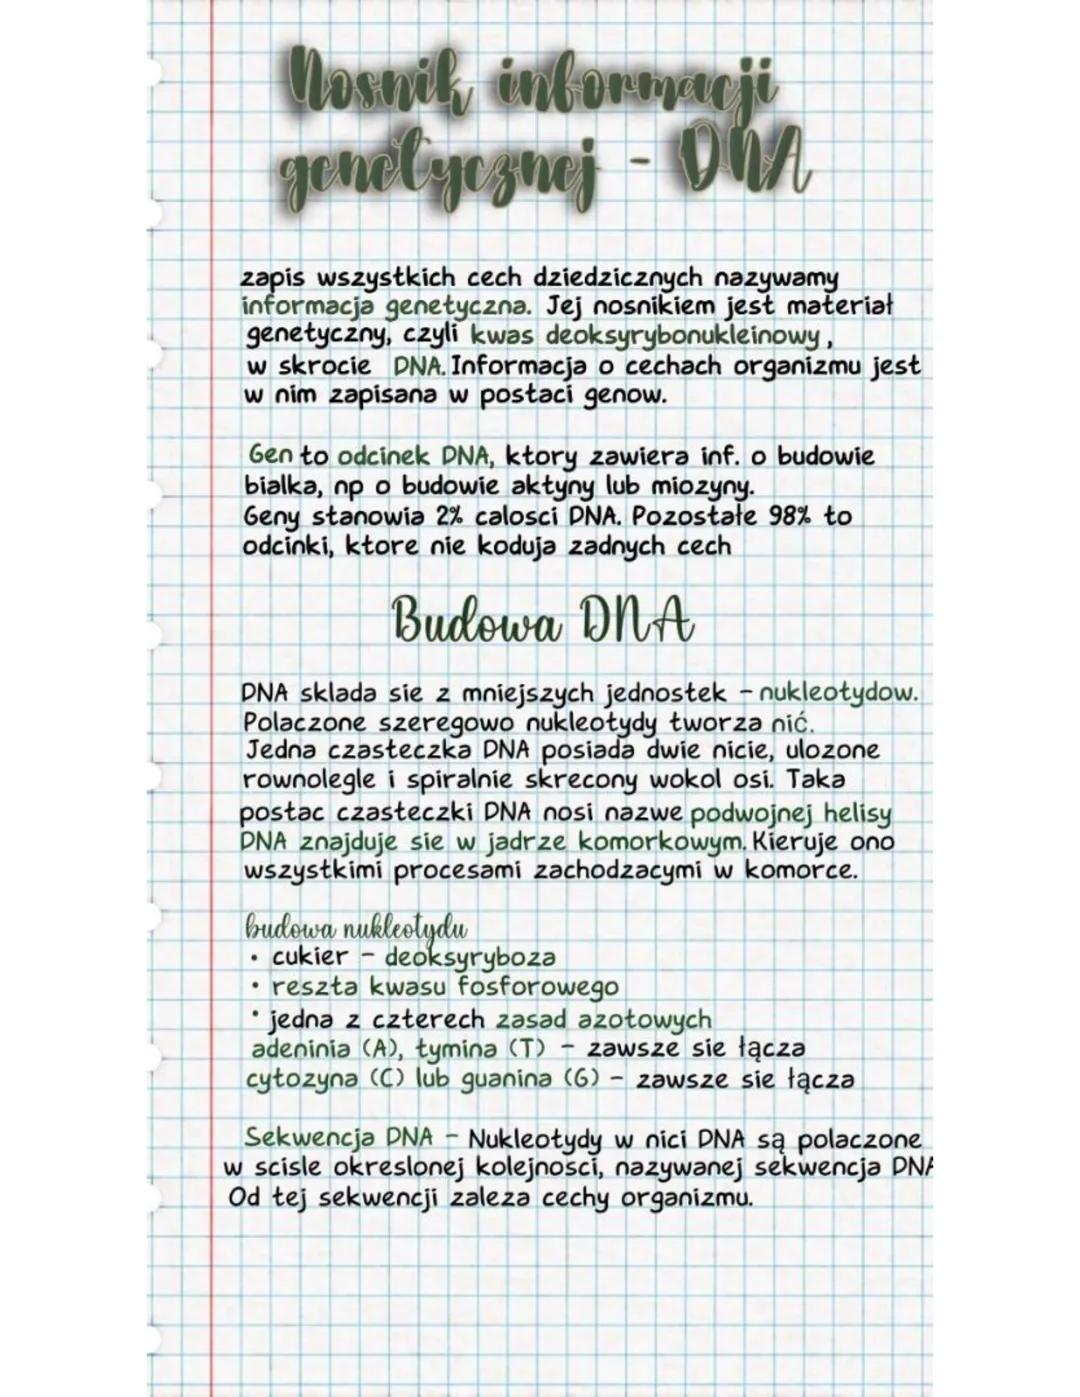 Nosnik informacji
genetycznej - DNA
zapis wszystkich cech dziedzicznych nazywamy
informacja genetyczna. Jej nosnikiem jest materiał
genetyczny, czyli kwas deoksyrybonukleinowy,
w skrocie DNA. Informacja o cechach organizmu jest
w nim zapisana w postaci genow.
Gen to odcinek DNA, ktory zawiera inf. o budowie
bialka, np o budowie aktyny lub miozyny.
Geny stanowia 2% calosci DNA. Pozostałe 98% to
odcinki, ktore nie koduja zadnych cech
Budowa DNA
DNA sklada sie z mniejszych jednostek - nukleotydow.
Polaczone szeregowo nukleotydy tworza nić.
Jedna czasteczka DNA posiada dwie nicie, ulozone
rownolegle i spiralnie skrecony wokol osi. Taka
postac czasteczki DNA nosi nazwe podwojnej helisy
DNA znajduje sie w jadrze komorkowym. Kieruje ono
wszystkimi procesami zachodzacymi w komorce.
budowa nukleotydu
• cukier - deoksyryboza
• reszta kwasu fosforowego
• jedna z czterech zasad azotowych
adeninia (A), tymina (T) - zawsze sie łącza
cytozyna (C) lub guanina (G) - zawsze sie łącza
Sekwencja DNA - Nukleotydy w nici DNA są polaczone
w scisle okreslonej kolejnosci, nazywanej sekwencja DNA
Od tej sekwencji zaleza cechy organizmu.